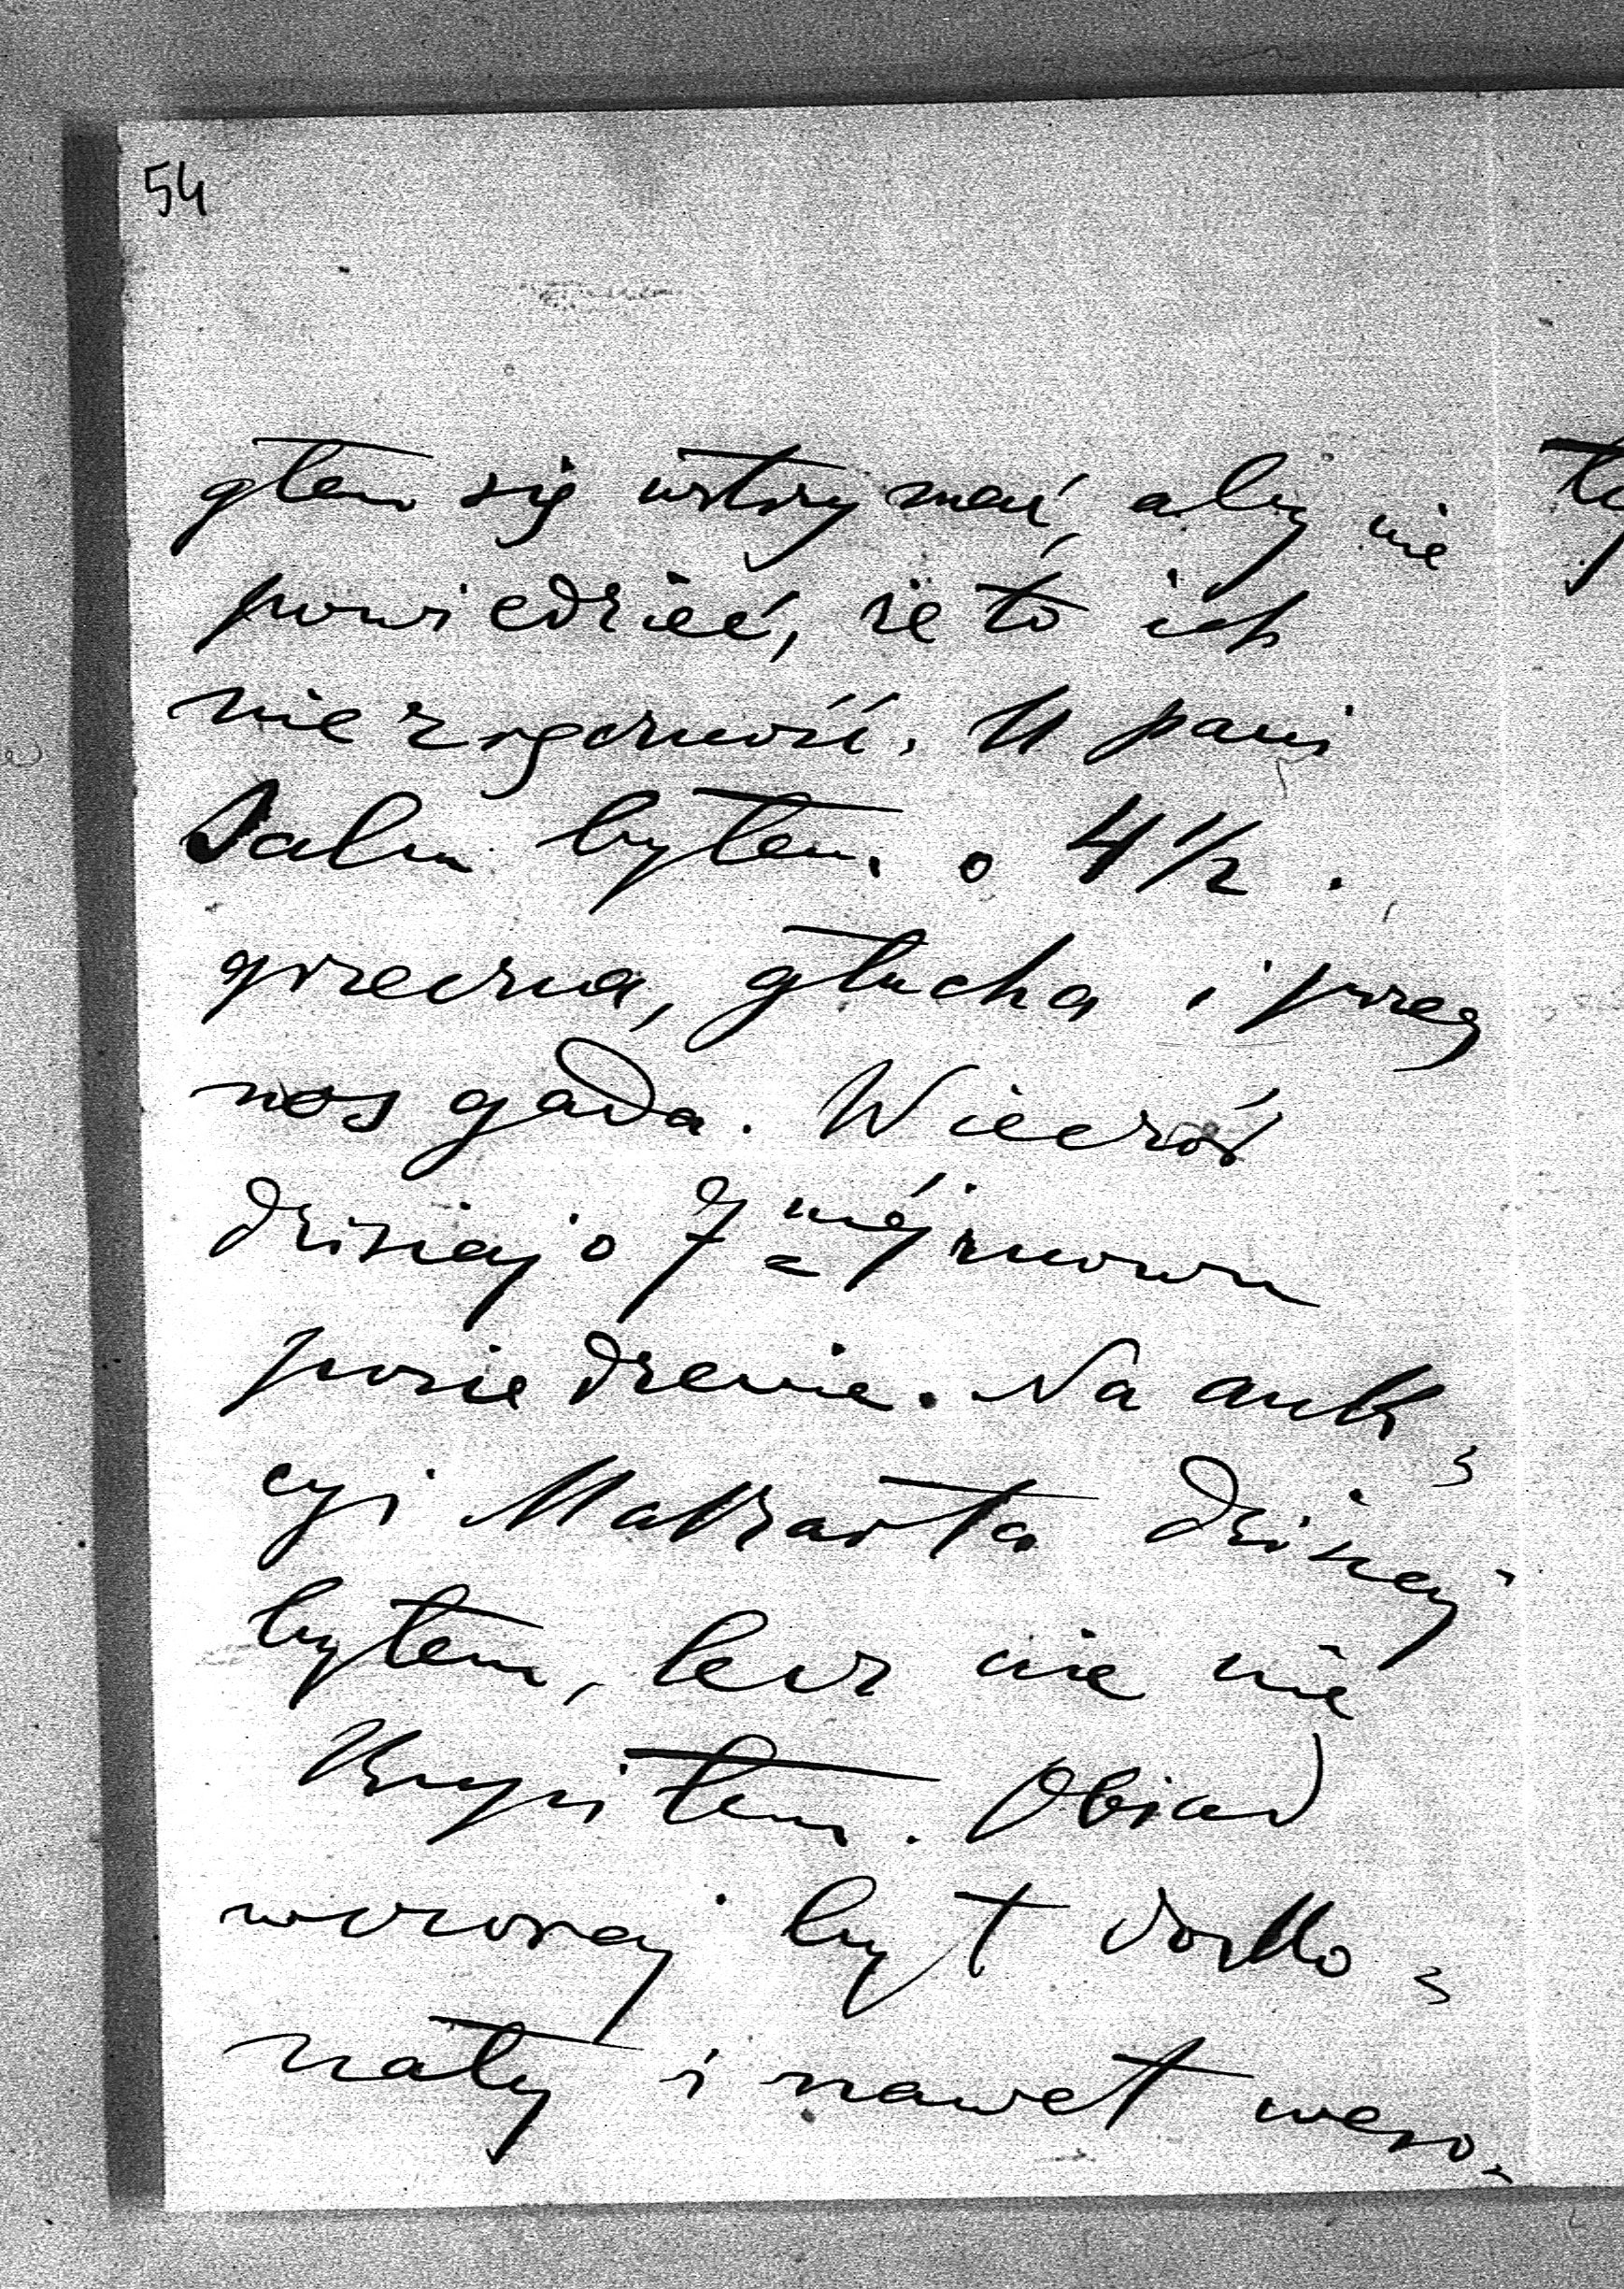 54
głem się wstrzymać, aby nie
powiedzieć, że to ich
niezręczność. U pani
Salm byłem o 4 1/2.
grzeczna, głucha i przez
nos gada. Wieczór
dzisiaj o 7méj znowu
posiedzenie. Na auk=
cyi Makarta dzisiaj
byłem, lecz nic nie
kupiłem. Obiad
wczoraj był dosko=
nały i nawet weso=